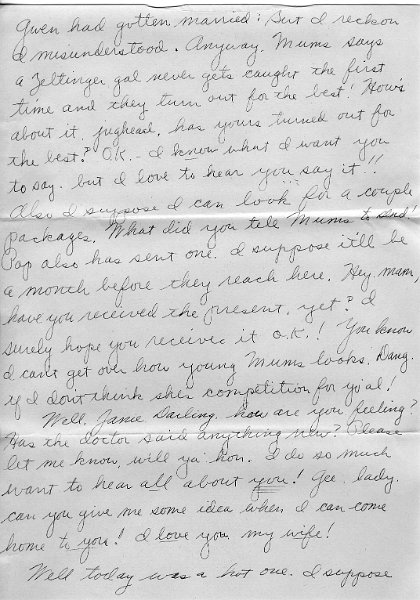 Gwen had gotten married? But I reckon
I misunderstood. Anyway, Mums says
a Zeltinger gal never gets caught the first
time and they turn out for the best! How's
about it, jughead, has yours turned out for
the best? O.K. - I know what I want you
to say. but I love to hear you say it!!
Also I suppose I can look for a couple
packages. What did you tell Mums to send!
Pop also has sent one. I suppose it'll be
a month before they reach here. Hey mam,
have you received the present, yet? I
surely hope you receive it O.K.! You know
I can't get over how young Mums looks. Dang
if I don't think she's competition for yo al!
Well, Janie Darling, how are you feeling?
Has the doctor said anything new? Please
let me know, will ya' hon. I do so much
want to hear all about you! Gee, lady,
can you give me some idea when I can come
home to you! I love you my wife!
Well today was a hot one. I suppose